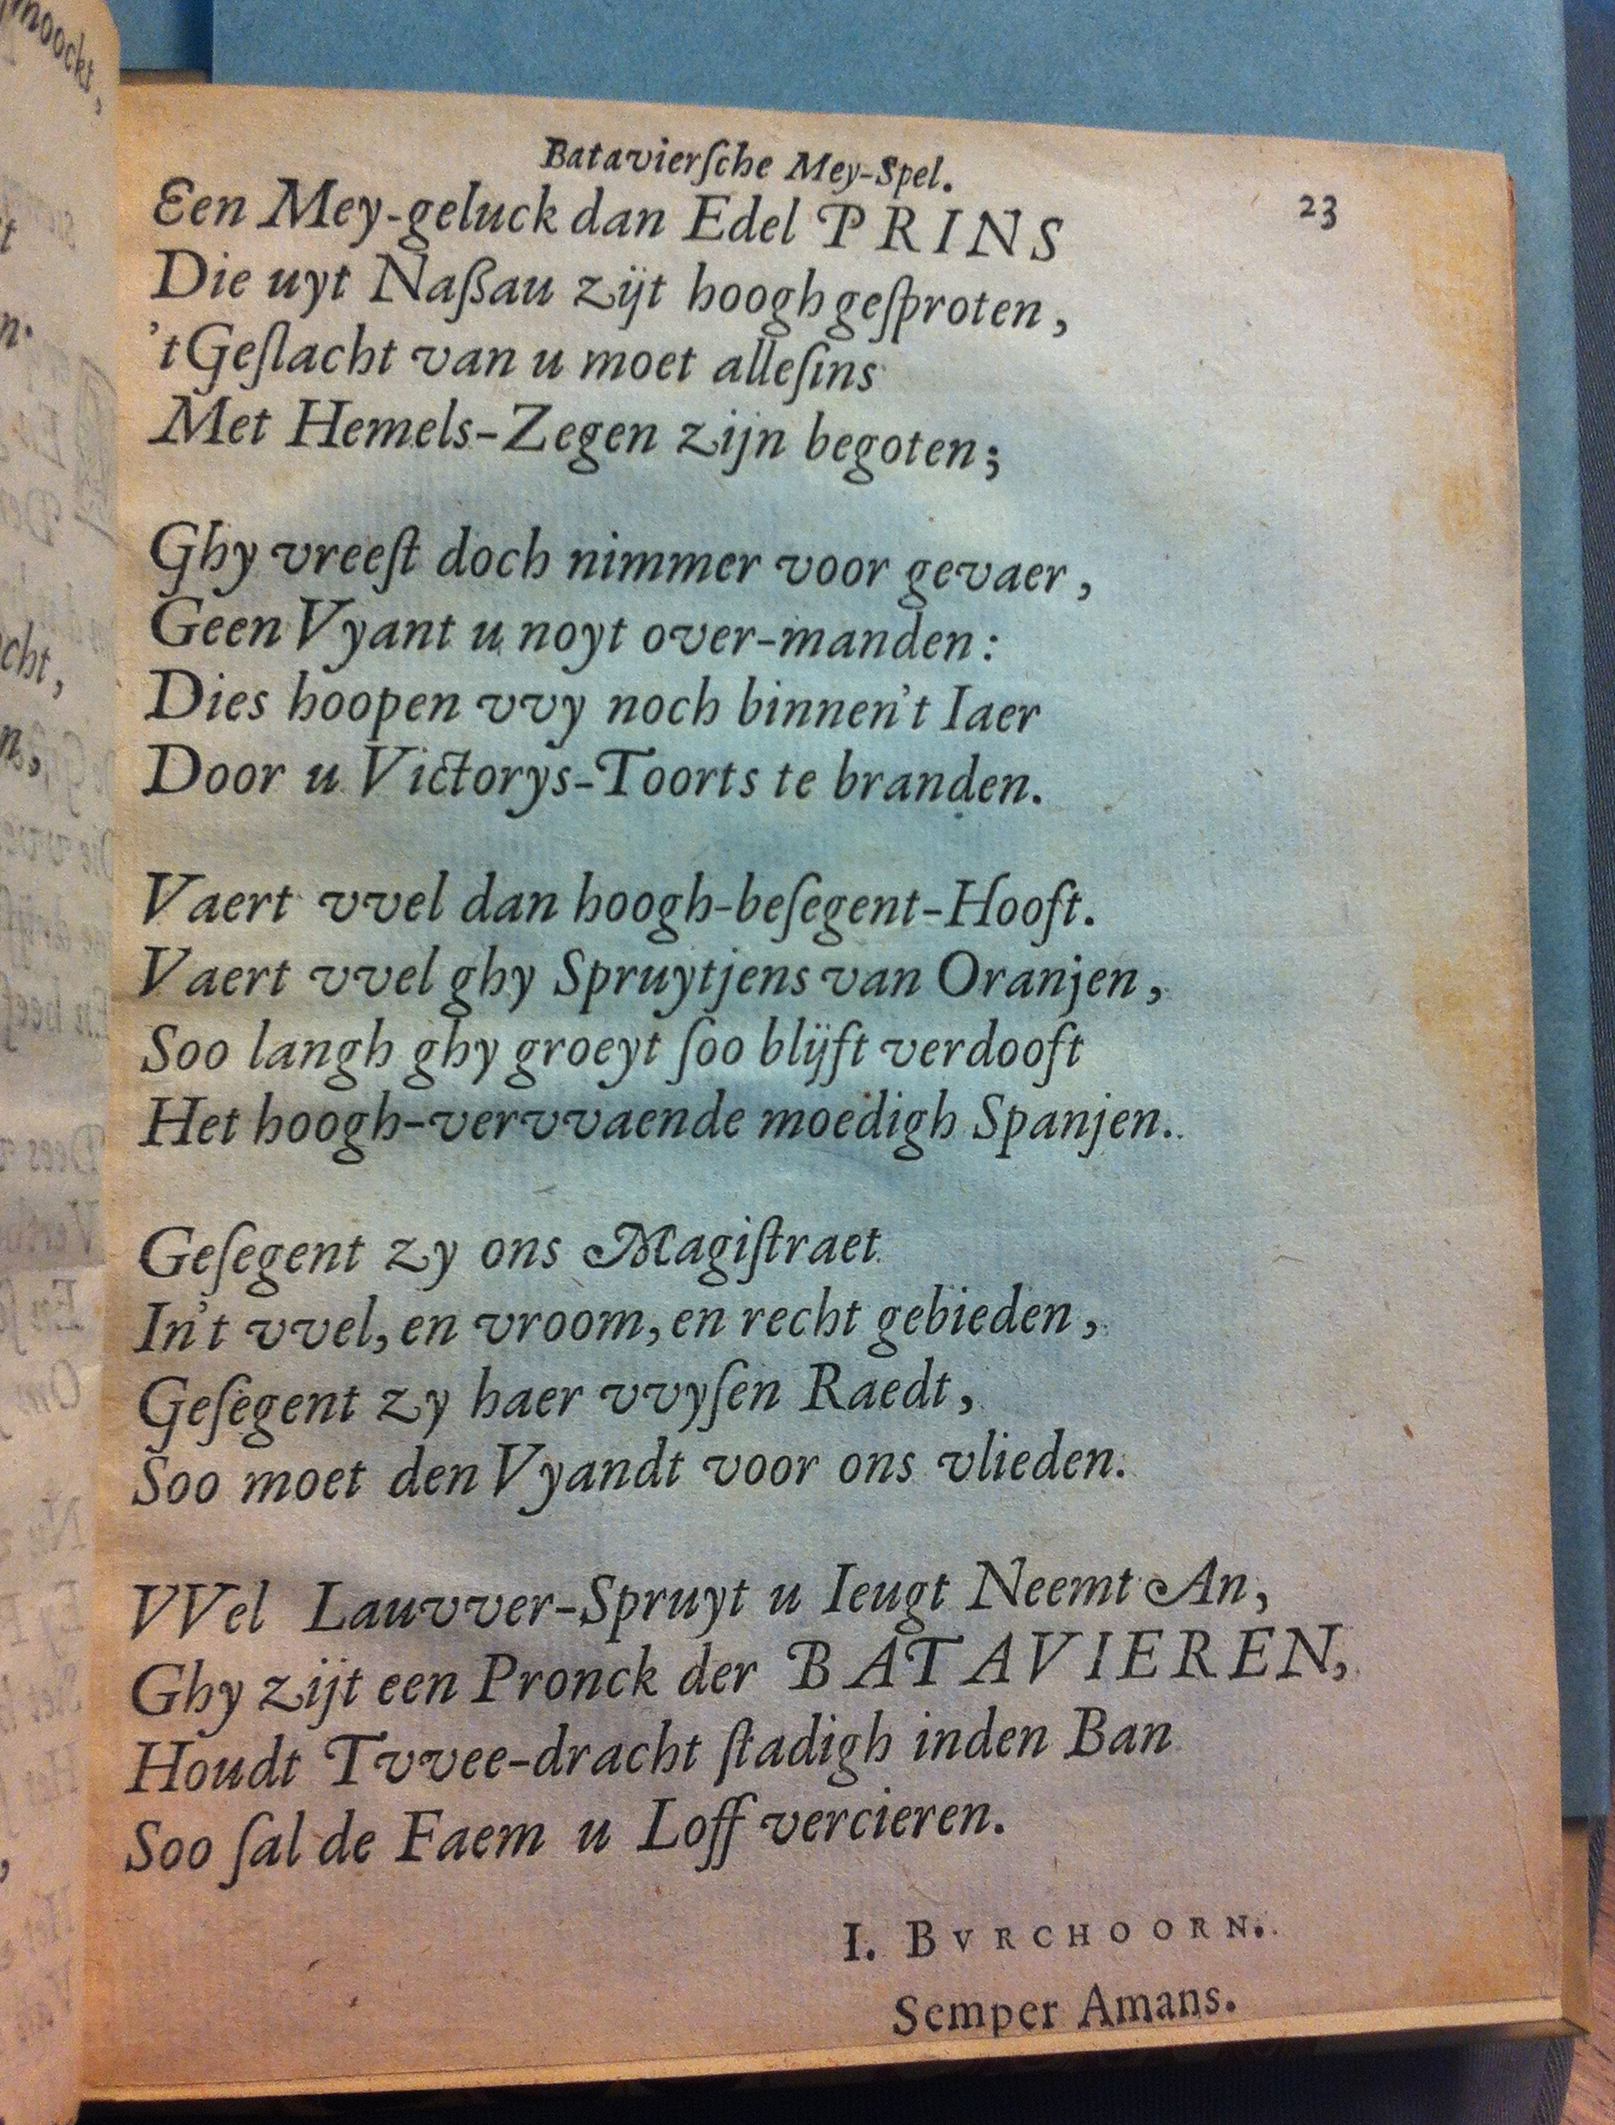 Bataviersche Mey-Spel.
23
Een Mey-geluck dan Edel PRINS
Die uyt Naßau zijt hoogh gesproten,
'tGeslacht van u moet allesins
Met Hemels-Zegen zijn begoten;
Ghy vreest doch nimmer voor gevaer,
Geen Vyant u noyt over-manden:
Dies hoopen vvy noch binnen't Iaer
Door u Victorys-Toorts te branden.
Vaert vvel dan hoogh-besegent-Hooft.
Vaert vvel ghy Spruytjens van Oranjen,
Soo langh ghy groeyt soo blijft verdooft
Het hoogh-vervvaende moedigh Spanjen.
Gesegent zy ons Magistraet
In't vvel, en vroom, en recht gebieden,
Gesegent zy haer vvysen Raedt,
Soo moet den Vyandt voor ons vlieden.
VVel Lauvver-Spruyt u Ieugt Neemt An,
Ghy zijt een Pronck der BATAVIEREN,
Houdt Tvvee-dracht stadigh inden Ban
Soo sal de Faem u Loff vercieren.
I. BVRCHOORN.
Semper Amans.